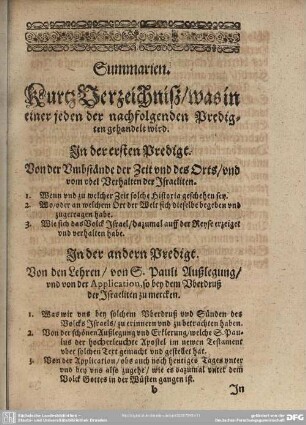 Summarien.
Kurtz Verzeichniß/ was in
einer jeden der nachfolgenden Predig-
ten gehandelt wird.
In der ersten Predigt.
Von der Umbstände der Zeit vnd des Orts/ vnd
vom vbel Verhalten der Israeliten.
1. Wenn vnd zu welcher Zeit solche Historia geschehen sey.
2. Wo/ oder an welchem Ort der Welt sich dieselbe begeben vnd
zugetragen habe.
3. Wie sich das Volck Israel/ dazumal auff der Reyse erzeiget
vnd verhalten habe.
In der andern Predigt.
Von den Lehren/ von S. Pauli Außlegung/
vnd von der Application, so bey dem Vberdruß
der Israeliten zu mercken.
1. Was wir bey solchem Vberdruß vnd Sünden des
Volcks Israels/ zu erinnern vnd zu betrachten haben.
2. Von der schönen Außlegung vnd Erklerung/ welche S. Pau-
lus der hocherleuchte Apostel im newen Testament
vber solchen Text gemacht vnd gestellet hat.
3. Von der Application/ obs auch noch heutiges Tages vnter
vnd bey vns also zugehe/ wie es dazumal vnter dem
Volck Gottes in der Wüsten gangen ist.
b In